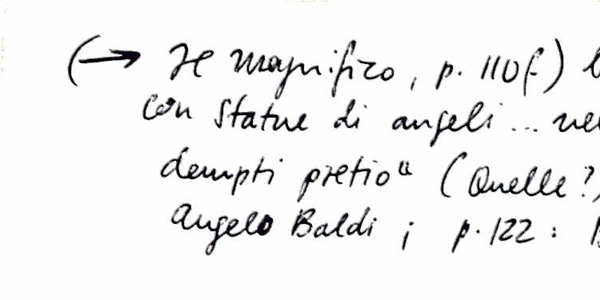 (→ Il magnifico, p. 110f.)
con statue di angeli...
dempti pretio" (Quelle?)
Angelo Baldi; p. 122: